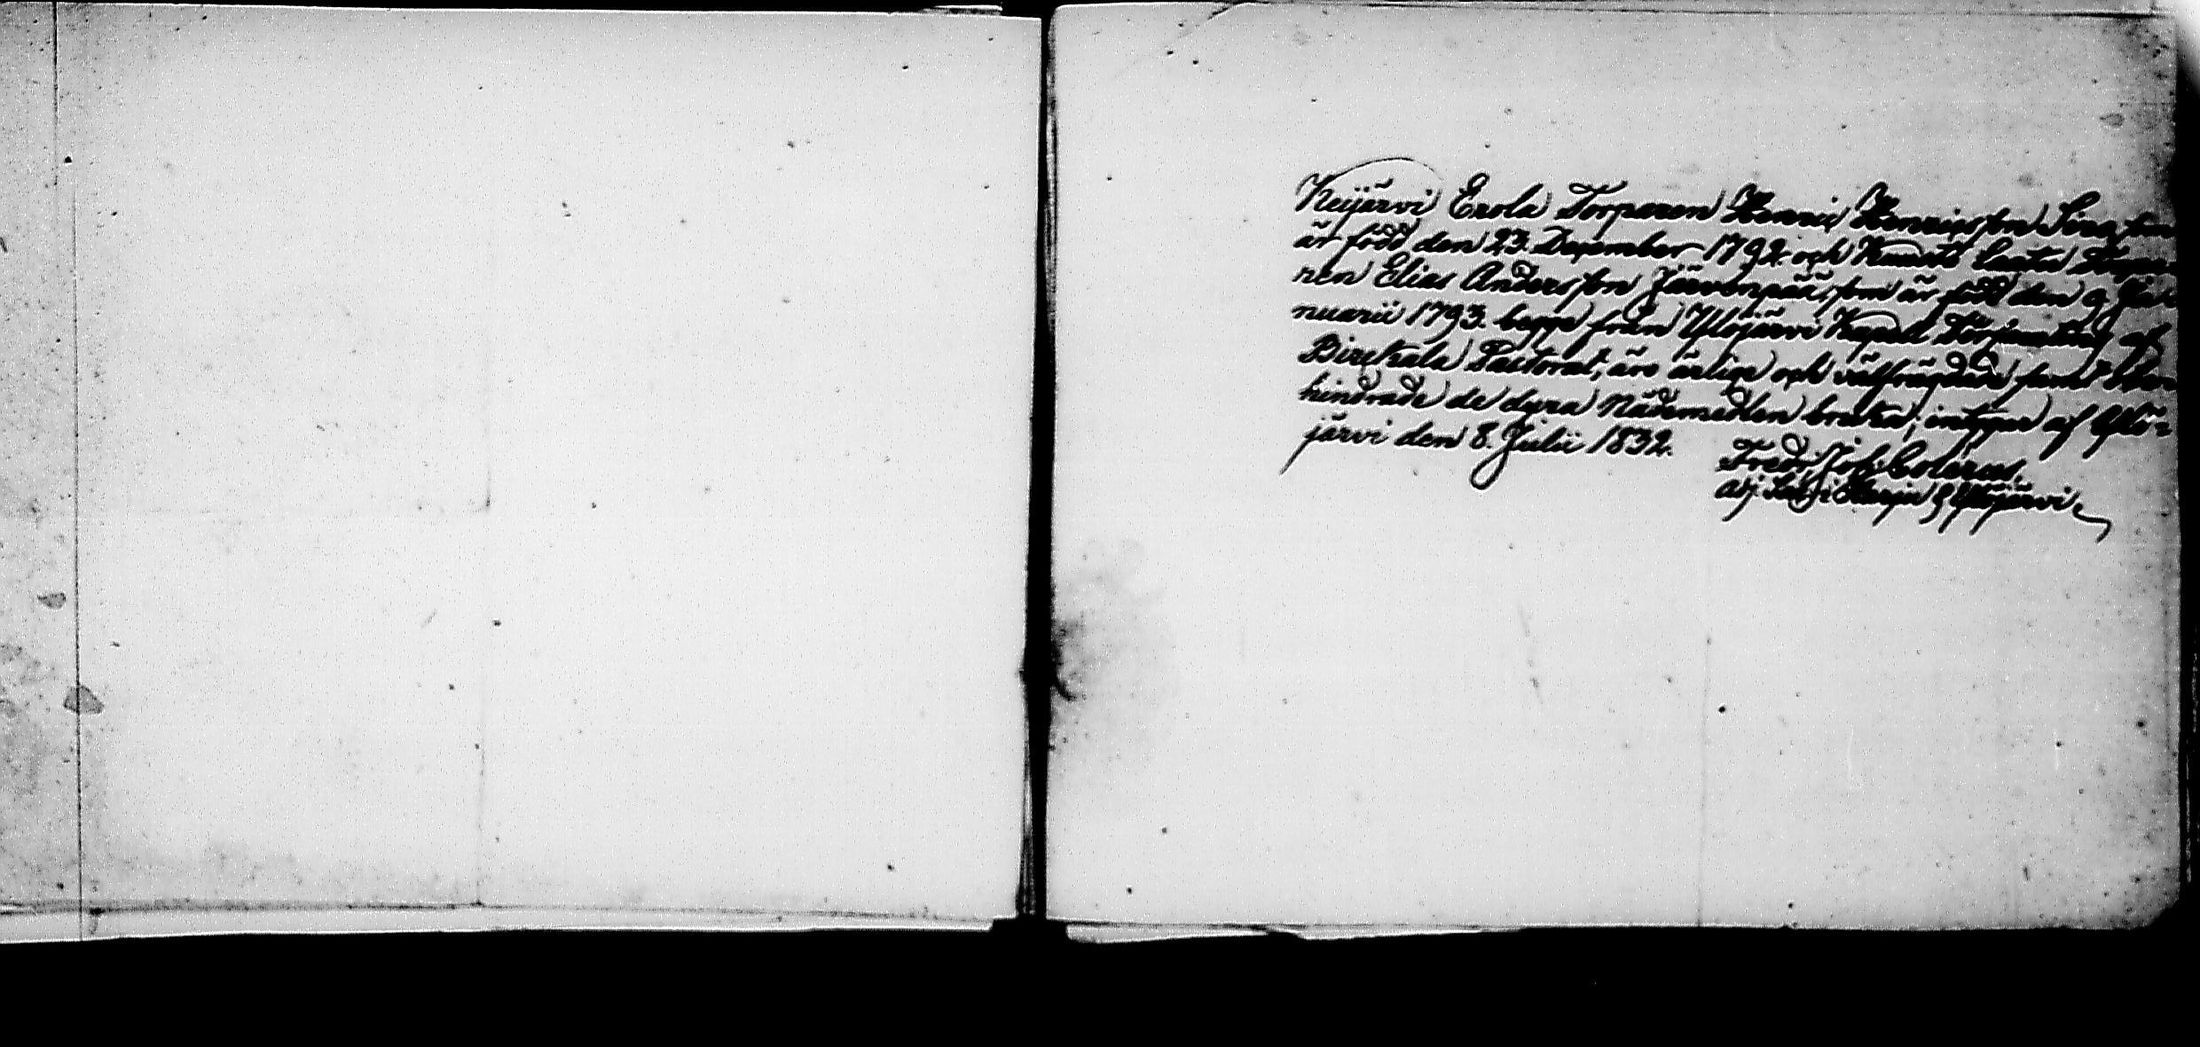 Keijärvi Erola Torparen Henric Henricsson Sina, som
är född den 23. December 1792. och Lauta Torpa-
ren Elias Andersson Järvenpää, som är född den 9. Ja-
nuarii 1793. begge från Ylöjärvi Kapell Församling af
Birckala Pastorat, äro ärlige och välfrägdade samt obe-
hindrade de dyra Nådemedlen bruka; intygar af Ylö-
järvi den 8. Julii 1832.
Fredr. Joh. Colerus,
adj. i Ylöjärvi.